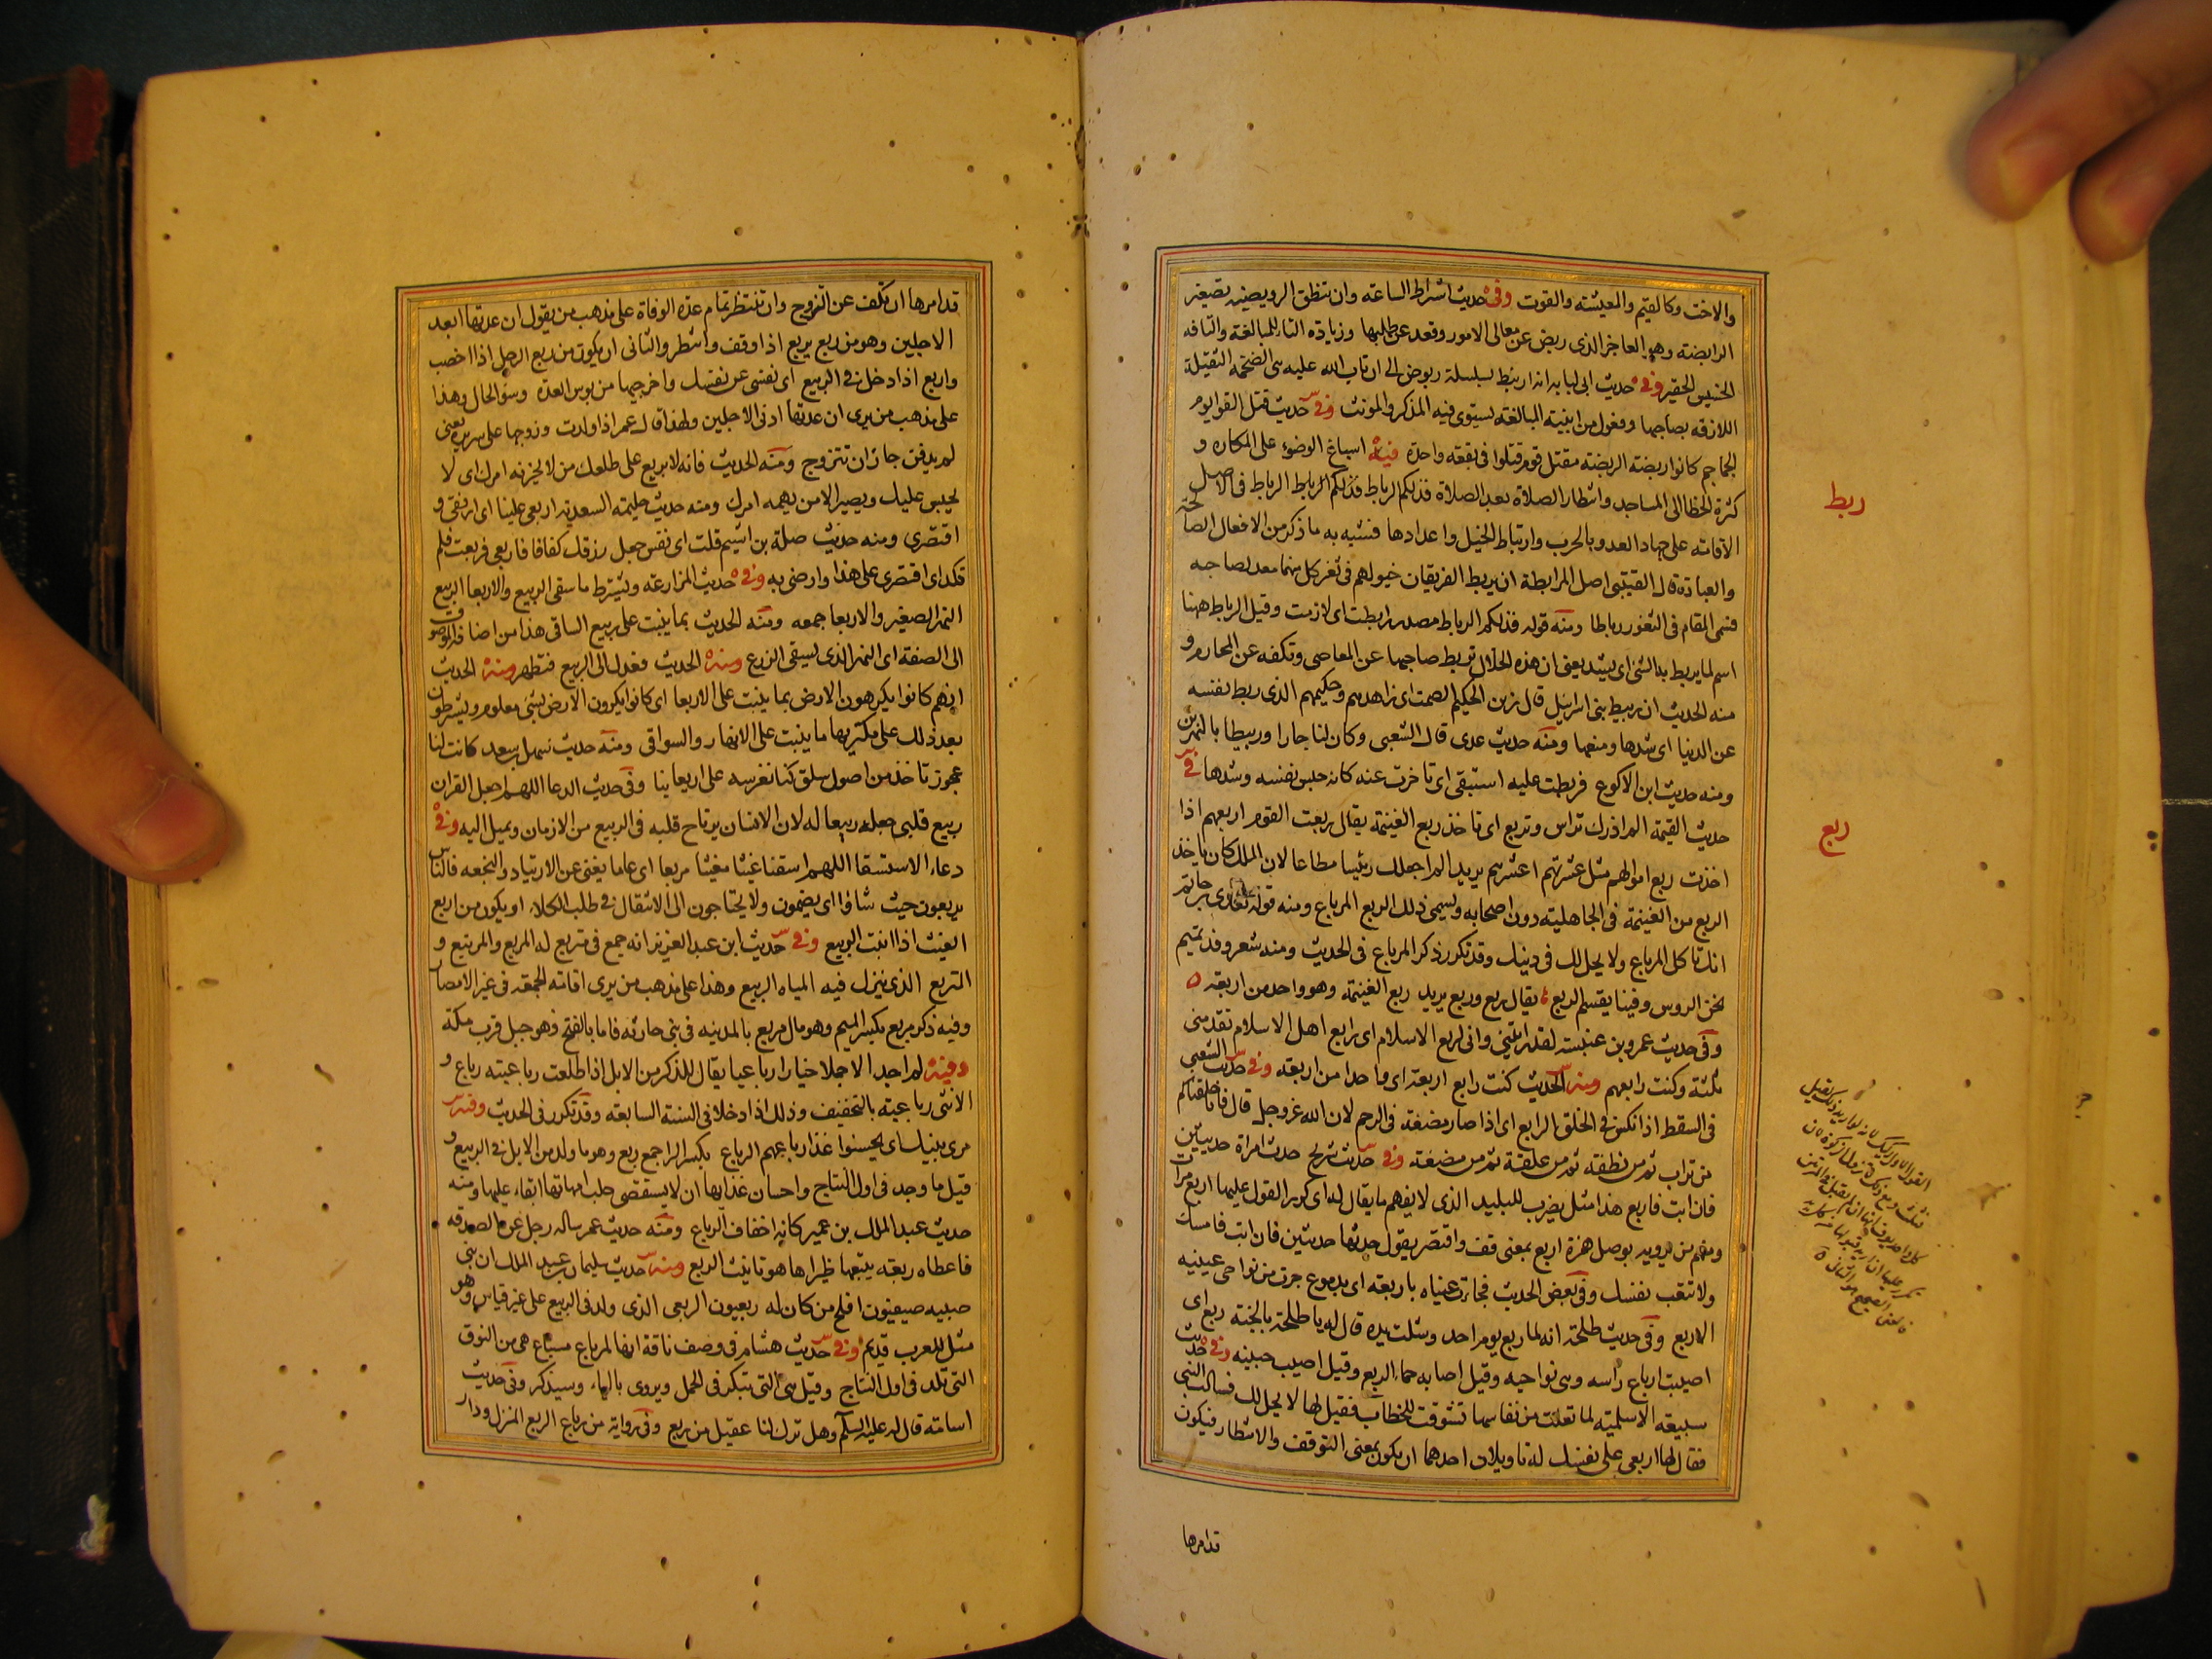 والاخت وكالقيم والمعيشه والقوت وفى حديث اشراط الساعه وان تنطق الرويبضه تصغير
الرابضه وهو العاجز الذى ربض عن معالى الامور وقعد عن طلبها وزيادة التا للمبالغه والتافه
الخسيس الحقير وفى حديث ابى لبابه انه ارتبط بسلسلة ربوض الى ان تاب الله عليه هى الضخمة الثقيلة
اللازقه بصاحبها وفعول من ابنية المبالغه يستوى فيه المذكر والمونث وفى حديث قتل القرا يوم
الجماجم كانوا ربضة الربضه مقتل قوم قتلوا فى بقعه واحدة
ربط
فيه اسباغ الوضوء على المكاره و
كثرة الخطا الى المساجد وانتظار الصلاة بعد الصلاة فذلكم الرباط فذلكم الرباط الرباط فى الاصل
الاقامه على جهاد العدو بالحرب وارتباط الخيل واعدادها فشبه به ما ذكر من الافعال الصالحة
والعبادة قال القتيبى اصل المرابطة ان يربط الفريقان خيولهم فى ثغر كل منهما معد لصاحبه
فسمى المقام فى الثغور رباطا ومنه قوله فذلكم الرباط مصدر رابطت اى لازمت وقيل الرباط ههنا
اسم لما يربط به الشئ اى يشد يعنى ان هذه الخلال تربط صاحبها عن المعاصى وتكفه عن المحارم و
منه الحديث ان ربيط بنى اسرائيل قال زين الحكيم الصمت اى زاهدهم وحكيمهم الذى ربط نفسه
عن الدنيا اى شدها ومنعها ومنه حديث عدى قال الشعبى وكان لنا جارا وربيطا بالنهرين
ومنه حديث ابن الاكوع فربطت عليه استبقى اى تاخرت عنه كانه حبس نفسه وشدها
ربع
فى
حديث القيمة الم اذرك تراس وتربع اى تاخذ ربع الغنيمة يقال ربعت القوم اربعهم اذا
اخذت ربع اموالهم مثل عشرتهم اعشرهم يريد الم اجعلك رئيسا مطاعا لان الملك كان ياخذ
الربع من الغنيمة فى الجاهليه دون اصحابه ويسمى ذلك الربع المرباع ومنه قوله لعدى بن حاتم
انك تاكل المرباع ولا يحل لك فى دينك وقد تكرر ذكر المرباع فى الحديث ومنه شعر وفد تميم
نحن الروس وفينا يقسم الربع يقال ربع وربع يريد ربع الغنيمة وهو واحد من اربعة
وفى حديث عمرو بن عنبسة لقد رايتنى وانى لربع الاسلام اى رابع اهل الاسلام تقدمنى
ثلثة وكنت رابعهم ومنه الحديث كنت رابع اربعة اى واحدا من اربعة وفى حديث الشعبى
فى السقط اذا نكس فى الخلق الرابع اى اذا صار مضغة فى الرحم لان الله عز وجل قال فانا خلقناكم
من تراب ثم من نطفه ثم من علقة ثم من مضغة وفى حديث شريح حدث امراة حديثين
فان ابت فاربع هذا مثل يضرب للبليد الذى لا يفهم ما يقال له اى كرر القول عليها اربع مرات
ومنهم من يرويه بوصل همزة اربع بمعنى قف واقتصر يقول حدثها حديثين فان ابت فامسك
ولا تتعب نفسك وفى بعض الحديث فجاءت عيناه باربعة اى بدموع جرت من نواحى عينيه
الاربع وفى حديث طلحة انه لما ربع يوم احد وشلت يده قال له باء طلحة بالجنة ربع اى
اصيبت ارباع راسه وهى نواحيه وقيل اصابه حماء الربع وقيل اصيب جبينه وفى حديث
سبيعة الاسلميه لما تعلت من نفاسها تشوفت للخطاب فقيل لها لا يحل لك فسالت النبى
فقال لها اربعى على نفسك له تاويلان احدهما ان يكون بمعنى التوقف والانتظار فيكون
قد امرها
قد امرها ان تكف عن التزوج وان تنتظر تمام عدة الوفاة على مذهب من يقول ان عدتها ابعد
الاجلين وهو من ربع يربع اذا وقف وانتظر والثانى ان يكون من ربع الرجل اذا اخصب
واربع اذا دخل فى الربيع اى نفسى عن نفسك واخرجيها من بوس العدة وسوء الحال وهذا
على مذهب من يرى ان عدتها ادنى الاجلين ولهذا قال عمر اذا ولدت وزوجها على سريره يعنى
لم يدفن جاز ان تتزوج ومنه الحديث فانه لا يربع على ظلعك من لا يحزنه امرك اى لا
يحبس عليك ويصبر الا من يهمه امرك ومنه حديث حليمه السعديه اربعى علينا اى ارفقى و
اقتصرى ومنه حديث صلة بن اشيم قلت اى نفس جعل رزقك كفافا فاربعى فربعت فلم
تكد اى اقتصرى على هذا وارضى به وفى حديث المزارعه ويشترط ما سقى الربيع والاربعا الربيع
النهر الصغير والاربعا جمعه ومنه الحديث بما ينبت على ربيع الساقى هذا من اضافة الموصوف
الى الصفة اى النهر الذى يسقى الزرع ومنه الحديث فعدل الى الربيع فتطهر ومنه الحديث
انهم كانوا يكرهون الارض بما ينبت على الاربعا اى كانوا يكرون الارض بشئ معلوم ويشترطون
بعد ذلك على مكتريها ما ينبت على الانهار والسواقى ومنه حديث سهل بن سعد كانت لنا
عجوز تاخذ من اصول سلق كنا نغرسه على اربعاينا وفى حديث الدعا اللهم اجعل القران
ربيع قلبى جعله ربيعا له لان الانسان يرتاح قلبه فى الربيع من الازمان ويميل اليه وفى
دعاء الاستسقا اللهم اسقنا غيثا مغيثا مربعا اى عاما يغنى عن الارتياد والنجعه فالناس
يربعون حيث شاؤا اى يقيمون ولا يحتاجون الى الانتقال فى طلب الكلاء او يكون من اربع
الغيث اذا انبت الربيع وفى حديث ابن عبد العزيز انه جمع فى متربع له المربع والمرتبع و
المتربع الذى ينزل فيه المياه الربيع وهذا على مذهب من يرى اقامة الجمعه فى غير الامصار
وفيه ذكر مربع بكسر الميم وهو مال مربع بالمدينه فى بنى حارثه فاما بالفتح فهو جبل قرب مكة
وفيه لم اجد الا جملا خيارا رباعيا يقال للذكر من الابل اذا طلعت رباعيته رباع و
الانثى رباعيه بالتخفيف وذلك اذا دخلا فى السنة السابعه وقد تكرر فى الحديث وفيه
مرى بنيك اى يحسنوا غذا رباعهم الرباع بكسر الرا جمع ربع وهو ما ولد من الابل فى الربيع و
قيل ما وجد فى اول النتاج واحسان غذايها ان لا يستقصى حلب امهاتها ابقاء عليها ومنه
حديث عبد الملك بن عمير كانه اخفاف الرباع ومنه حديث عمر ساله رجل عن الصدقه
فاعطاه ربعه يتبعها ظيراها هو تانيث الربع ومنه حديث سليمان بن عبد الملك ان بنى
صبيه صيفيون افلح من كان له ربعيون الربعى الذى ولد فى الربيع على غير قياس وهو
مثل للعرب قديم وفى حديث هشام فى وصف ناقة انها لمرباع مسياع هى من النوق
التى تلد فى اول النتاج وقيل هى التى تبكر فى الحمل ويروى بالياء وسيذكر وفى حديث
اسامة قال له عليه السلام وهل ترك لنا عقيل من ربع وفى رواية من رباع الربع المنزل ودار